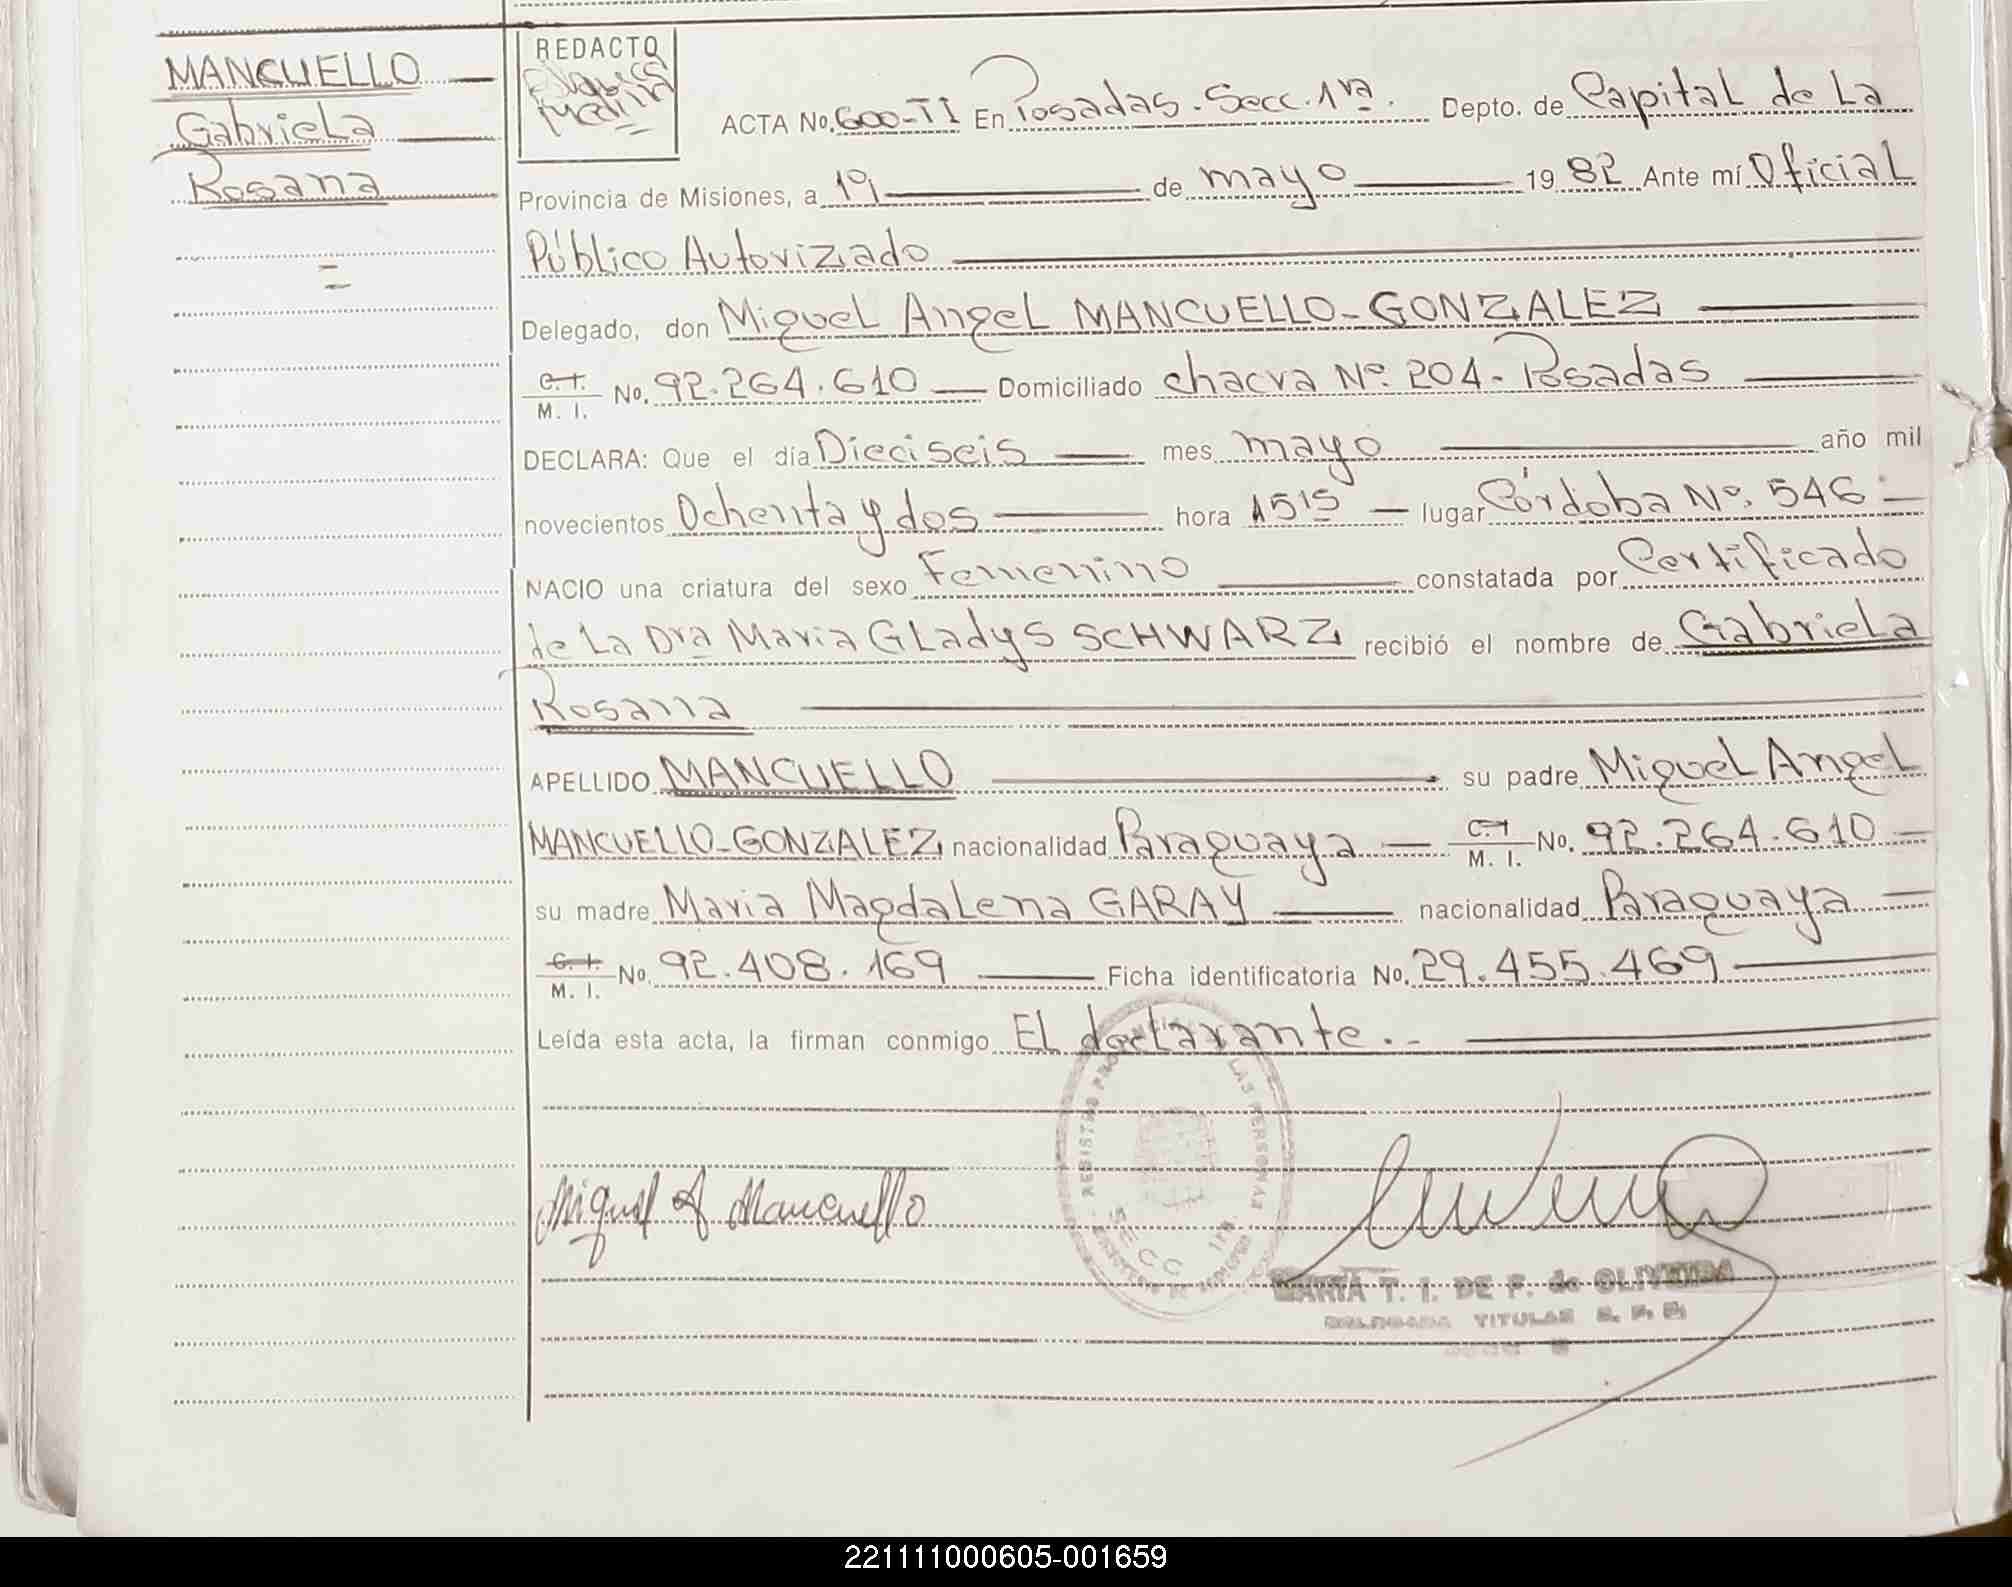 MANCUELLO
Gabriela
Rosana
REDACTO
ACTA No. 600-TI En Posadas. Secc. 1ra. Depto. de Capital de La
Provincia de Misiones, a 19 de mayo 1982 Ante mí Oficial
Público Autorizado
Delegado, don Miguel Angel MANCUELLO-GONZALEZ
C.I. M. I. No. 92.264.610 Domiciliado chacra Nº. 204- Posadas
DECLARA: Que el día Dieciseis mes mayo año mil
novecientos Ochenta y dos hora 15 15 lugar Córdoba Nº. 546
NACIO una criatura del sexo Femenino constatada por Certificado
de La Dra Maria GLadys SCHWARZ recibió el nombre de Gabriela
Rosana
APELLIDO MANCUELLO su padre Miguel Angel
MANCUELLO-GONZALEZ nacionalidad Paraguaya C.I. M. I. No. 92.264.610
su madre Maria Magdalena GARAY nacionalidad Paraguaya
C.I. M. I. No. 92.408.169 Ficha identificatoria No. 29.455.469
Leída esta acta, la firman conmigo El declarante..
REGISTRO PROVINCIAL LAS PERSONAS
SECC 1RA
Miguel A Mancuello
MARIA T. I. DE F. de OLIVEIRA
DELEGADA TITULAR
221111000605-001659